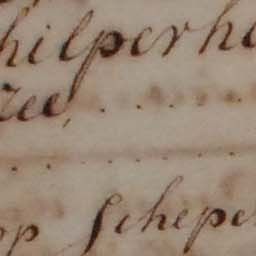 hilperh
ree,
op Schepe